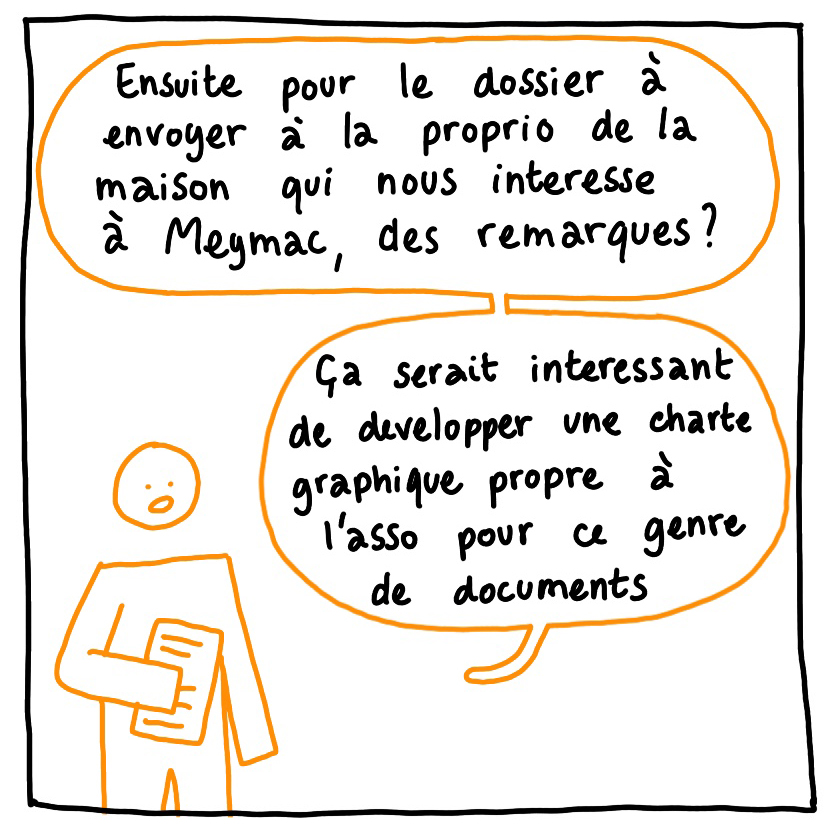 Ensuite pour le dossier à
envoyer à la proprio de la
maison qui nous interesse
à Meymac, des remarques?
Ça serait interessant
de developper une charte
graphique propre à
l'asso pour ce genre
de documents